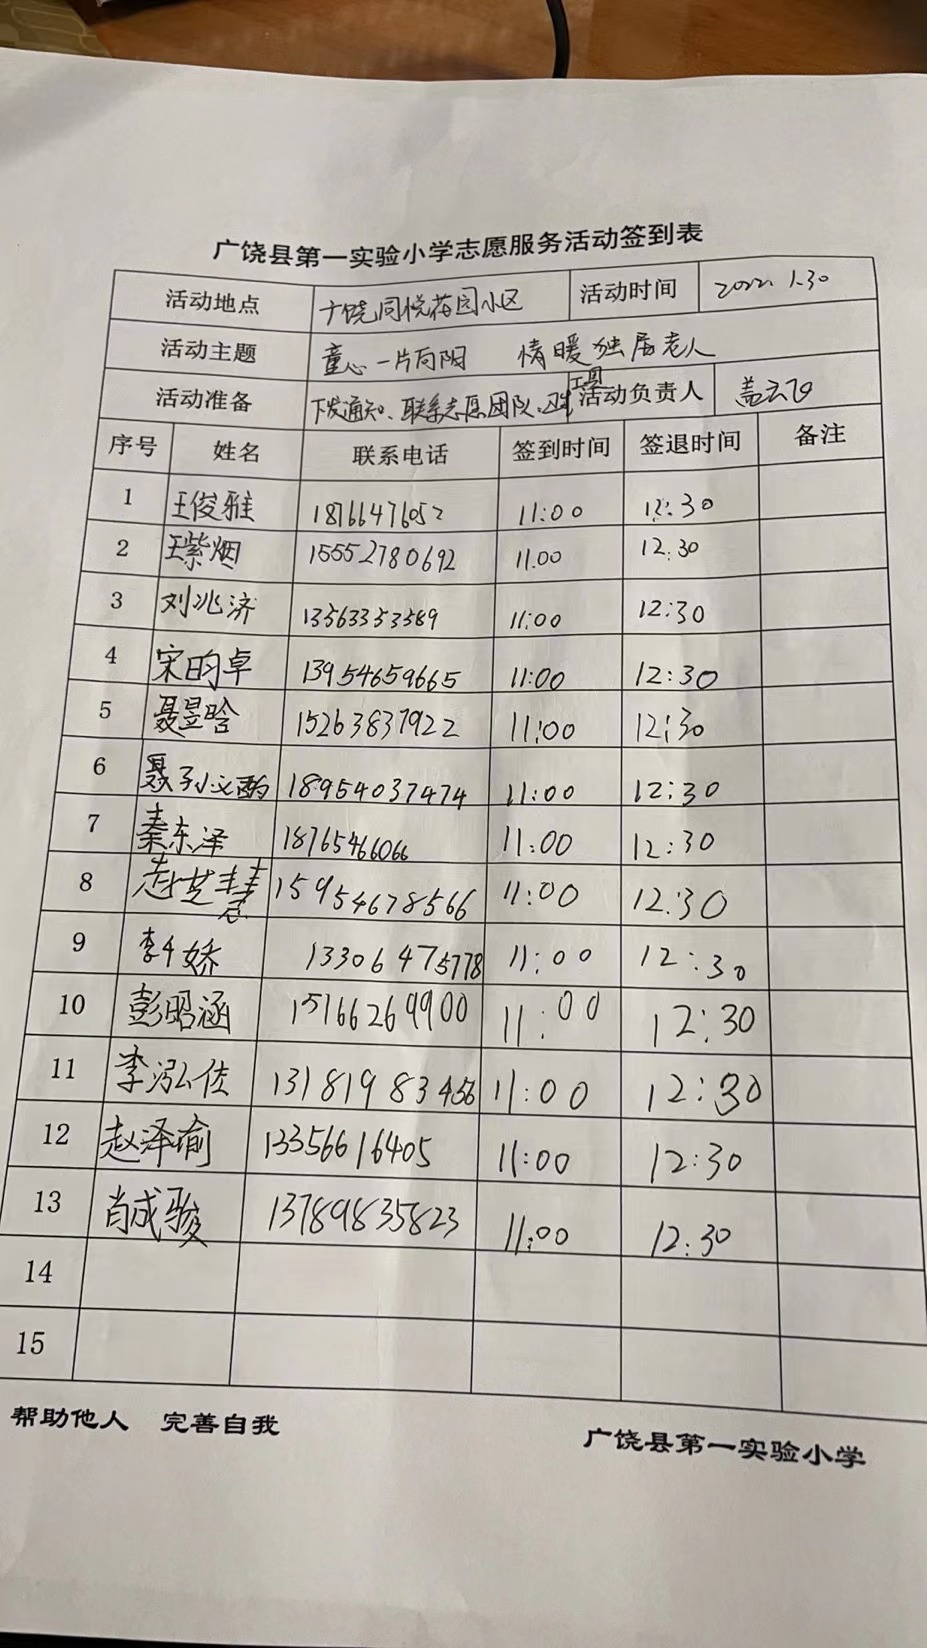 广饶县第一实验小学志愿服务活动签到表
活动地点 广饶同悦花园小区 活动时间 2022.1.30
活动主题 童心一片向阳 情暖独居老人
活动准备 下发通知、联系志愿团队、卫生工具 活动负责人 盖云飞
序号 姓名 联系电话 签到时间 签退时间 备注
1 王俊雅 18766476052 11:00 12:30
2 王紫烟 15552780692 11.00 12:30
3 刘兆济 13563353589 11:00 12:30
4 宋昀卓 13954659665 11:00 12:30
5 聂昱晗 15263837922 11:00 12:30
6 聂 18954037474 11:00 12:30
7 秦东泽 18765466066 11:00 12:30
8 15954678566 11:00 12:30
9 李千娇 13306475778 11:00 12:30
10 彭昭涵 15166269900 11:00 12:30
11 李泓佐 13181983456 11:00 12:30
12 赵泽瑜 13356616405 11:00 12:30
13 肖成骏 13789835823 11:00 12:30
14
15
帮助他人 完善自我
广饶县第一实验小学